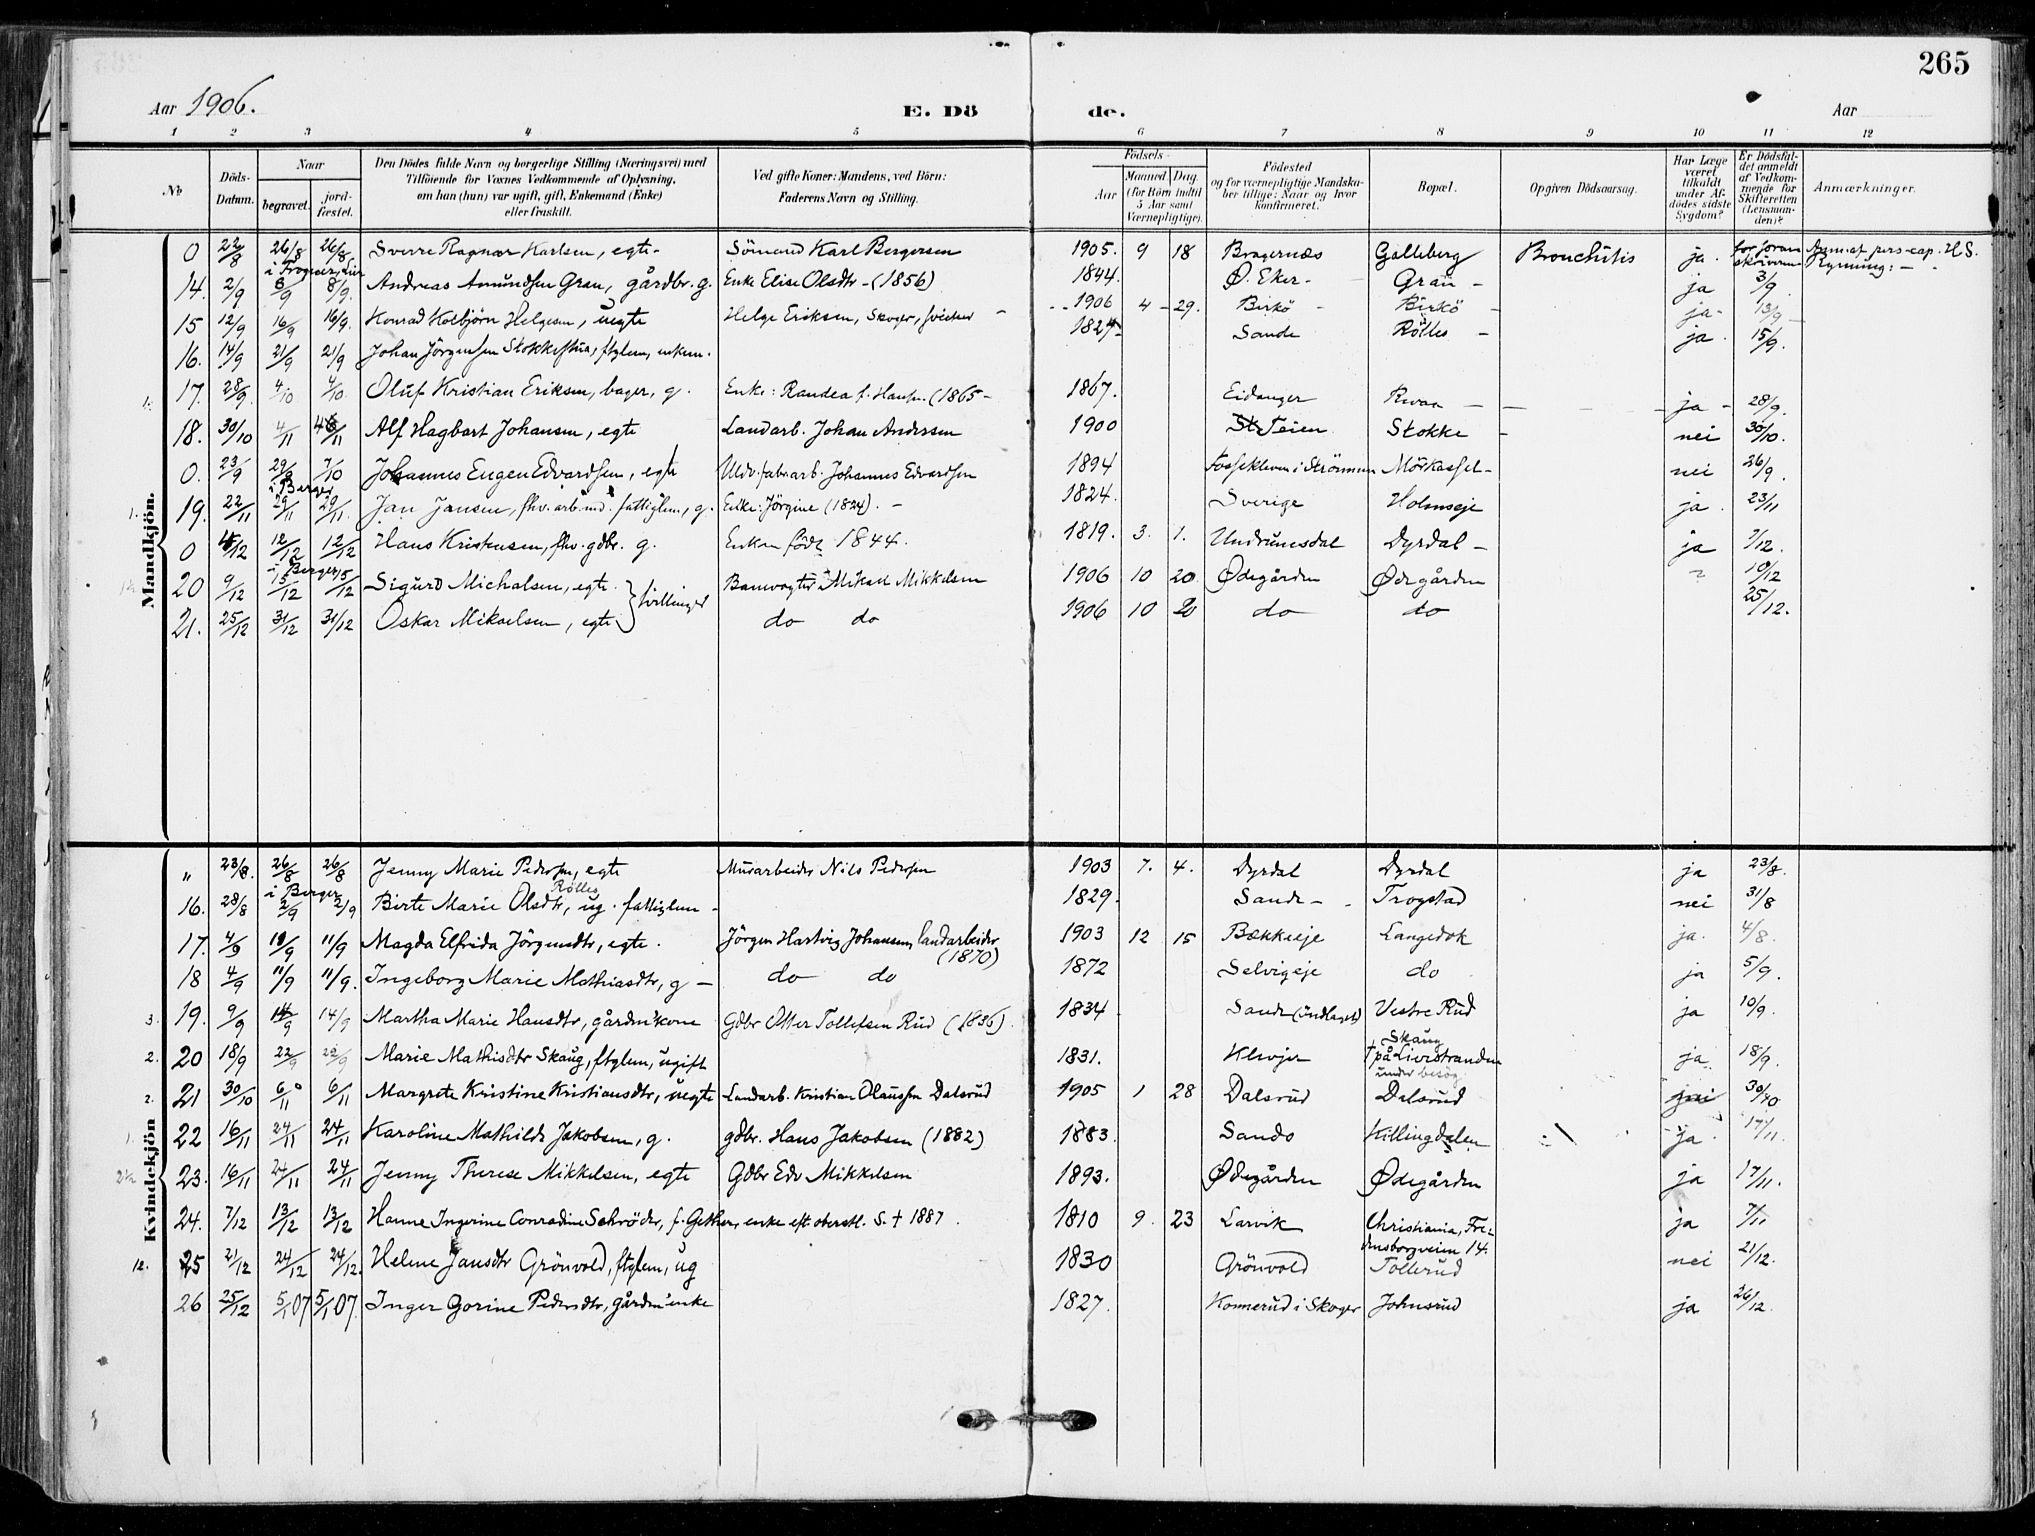 265
Aar 1906. E. Dö de. Aar
1 2 3 4 5 6 7 8 9 10 11 12
No Döds-Datum. Naar begravet. jord-fæstet. Den Dödes fulde Navn og borgerlige Stilling (Næringsvei) med Tilföiende for Voxnes Vedkommende af Oplysning, om han (hun) var ugift, gift, Enkemand (Enke) eller fraskilt. Ved gifte Koner: Mandens, ved Börn: Faderens Navn og Stilling. Födsels- Aar Maaned Dag. (for Börn indtil 5 Aar samt Værnepligtige). Födested og for værnepligtige Mandskaber tillige: Naar og hvor konfirmeret. Bopæl. Opgiven Dödsaarsag. Har Læge været tilkaldt under Afdödes sidste Sygdom? Er Dödsfaldet anmeldt af Vedkommende for Skifteretten (Lensmanden)? Anmærkninger.
Mandkjön.
0 22/8 26/8 26/8 Sverre Ragnar Karlsen, egte Sömand Karl Bergersen 1905. 9 18 Bragernæs Galleberg Bronchitis ja.
i Trogner, Lier
14. 2/9 8/9 8/9. Andreas Amundsen Gran, gårdbr. g. Enke Elise Olsdtr - (1856) 1844. Ø. Eker - Gran - ja 3/9
15 12/9 16/9 16/9. Konrad Kolbjörn Helgesen, uegte Helge Eriksen, Skoger 1906 4 - 29. Birkö - Birkö - ja - 13/9
16. 14/9 21/9 21/9 Johan Jörgensen Stokkestua, ftglem, enkem. 1824 Sande Rölles - ja. 15/9.
17. 28/9. 4/10 4/10 Oluf Kristian Eriksen, bager, g. Enke: Randea f. Hansen (1865 - 1867. Eidanger Revaa - ja - 28/9.
18. 30/10 4/11 4/11 Alf Hagbart Johansen, egte Landarb. Johan Andersen 1900 Teien Stokke - nei 30/10.
0. 23/9 29/9 7/10 Johannes Eugen Edvardsen, egte Uldv. fabr. arb. Johannes Edvardsen 1894 Fossekleven i Strömmen Mörkassel - nei 26/9.
i Berger
19. 22/11 29/11 29/11. Jan Jansen, fhv. arb. md. fattiglem, g. Enke: Jörgine (1824). - 1824. Sverige Holmseje ja. 23/11
0 4/12 12/12 12/12 Hans Kristensen, fhv. gdbr. g. Enken född 1844. 1819. 3. 1. Undrumsdal Dyrdal - ja 7/12.
i Berger
20 9/12 15/12 15/12 Sigurd Michalsen, egte } tvillinger Banevogter Mikael Mikkelsen 1906 10 20. Ødegården Ødegården 10/12
21. 25/12 31/12 31/12 Oskar Mikaelsen, egte do do 1906 10 20 do do 25/12.
Kvindekjön
" 23/8. 26/8 26/8 Jenny Marie Pedersen, egte Murarbeider Nils Pedersen 1903 7. 4. Dyrdal Dyrdal ja 23/8.
i Berger Rölles
16. 28/8 2/9 2/9 Birte Marie Olsdtr, ug. fattiglem - 1829. Sande - - Trogstad nei 31/8
17. 4/9 11/9 11/9 Magda Elfrida Jörgensdtr, egte. Jörgen Hartvig Johansen, landarbeider (1870) 1903 12 15 Bækkeeje Langedok ja. 4/8.
18 4/9 11/9 11/9. Ingeborg Marie Mathiasdtr, g - do do 1872 Selvigeje do ja 5/9.
3. 19. 9/9 14/9 14/9 Martha Marie Hansdtr, gårdm'kone Gdbr Otter Tollefsen Rud (1836). 1834 Sande (indlaget) Vestre Rud ja 10/9.
2. 20 18/9 22/9 22/9 Marie Mathisdtr Skaug, ftglem, ugift 1831. Klevjer Skaug † på Lierstranden under besög ja. 18/9.
2. 21 30/10 6/11 6/11 Margrete Kristine Kristiansdtr, uegte Landarb. Kristian Olaussen Dalsrud 1905 1 28 Dalsrud Dalsrud 30/10
1. 22 16/11 24/11 24/11 Karoline Mathilde Jakobsen, g. gdbr. Hans Jakobsen (1882) 1883. Sande Killingdalen ja. 17/11.
23. 16/11 24/11 24/11 Jenny Therese Mikkelsen, egte Gdbr Edv Mikkelsen 1893. Ødegården Ødegården ja 17/11.
24. 7/12 13/12 13/12 Hanne Ingerine Conradine Schröder, f. Gether, enke eft. oberstl. S. † 1887. 1810 9. 23 Larvik Christiania, Fredensborgveien 14. ja 7/11
12. 25 21/12 24/12 24/12. Helene Jansdtr Grönvold, ftglem, ug 1830 Grönvold Tollerud nei 21/12.
26 25/12 5/1 07 5/1 07. Inger Gorine Pedersdtr, gårdm'enke 1827. Konnerud i Skoger Johnsrud ja 26/12.